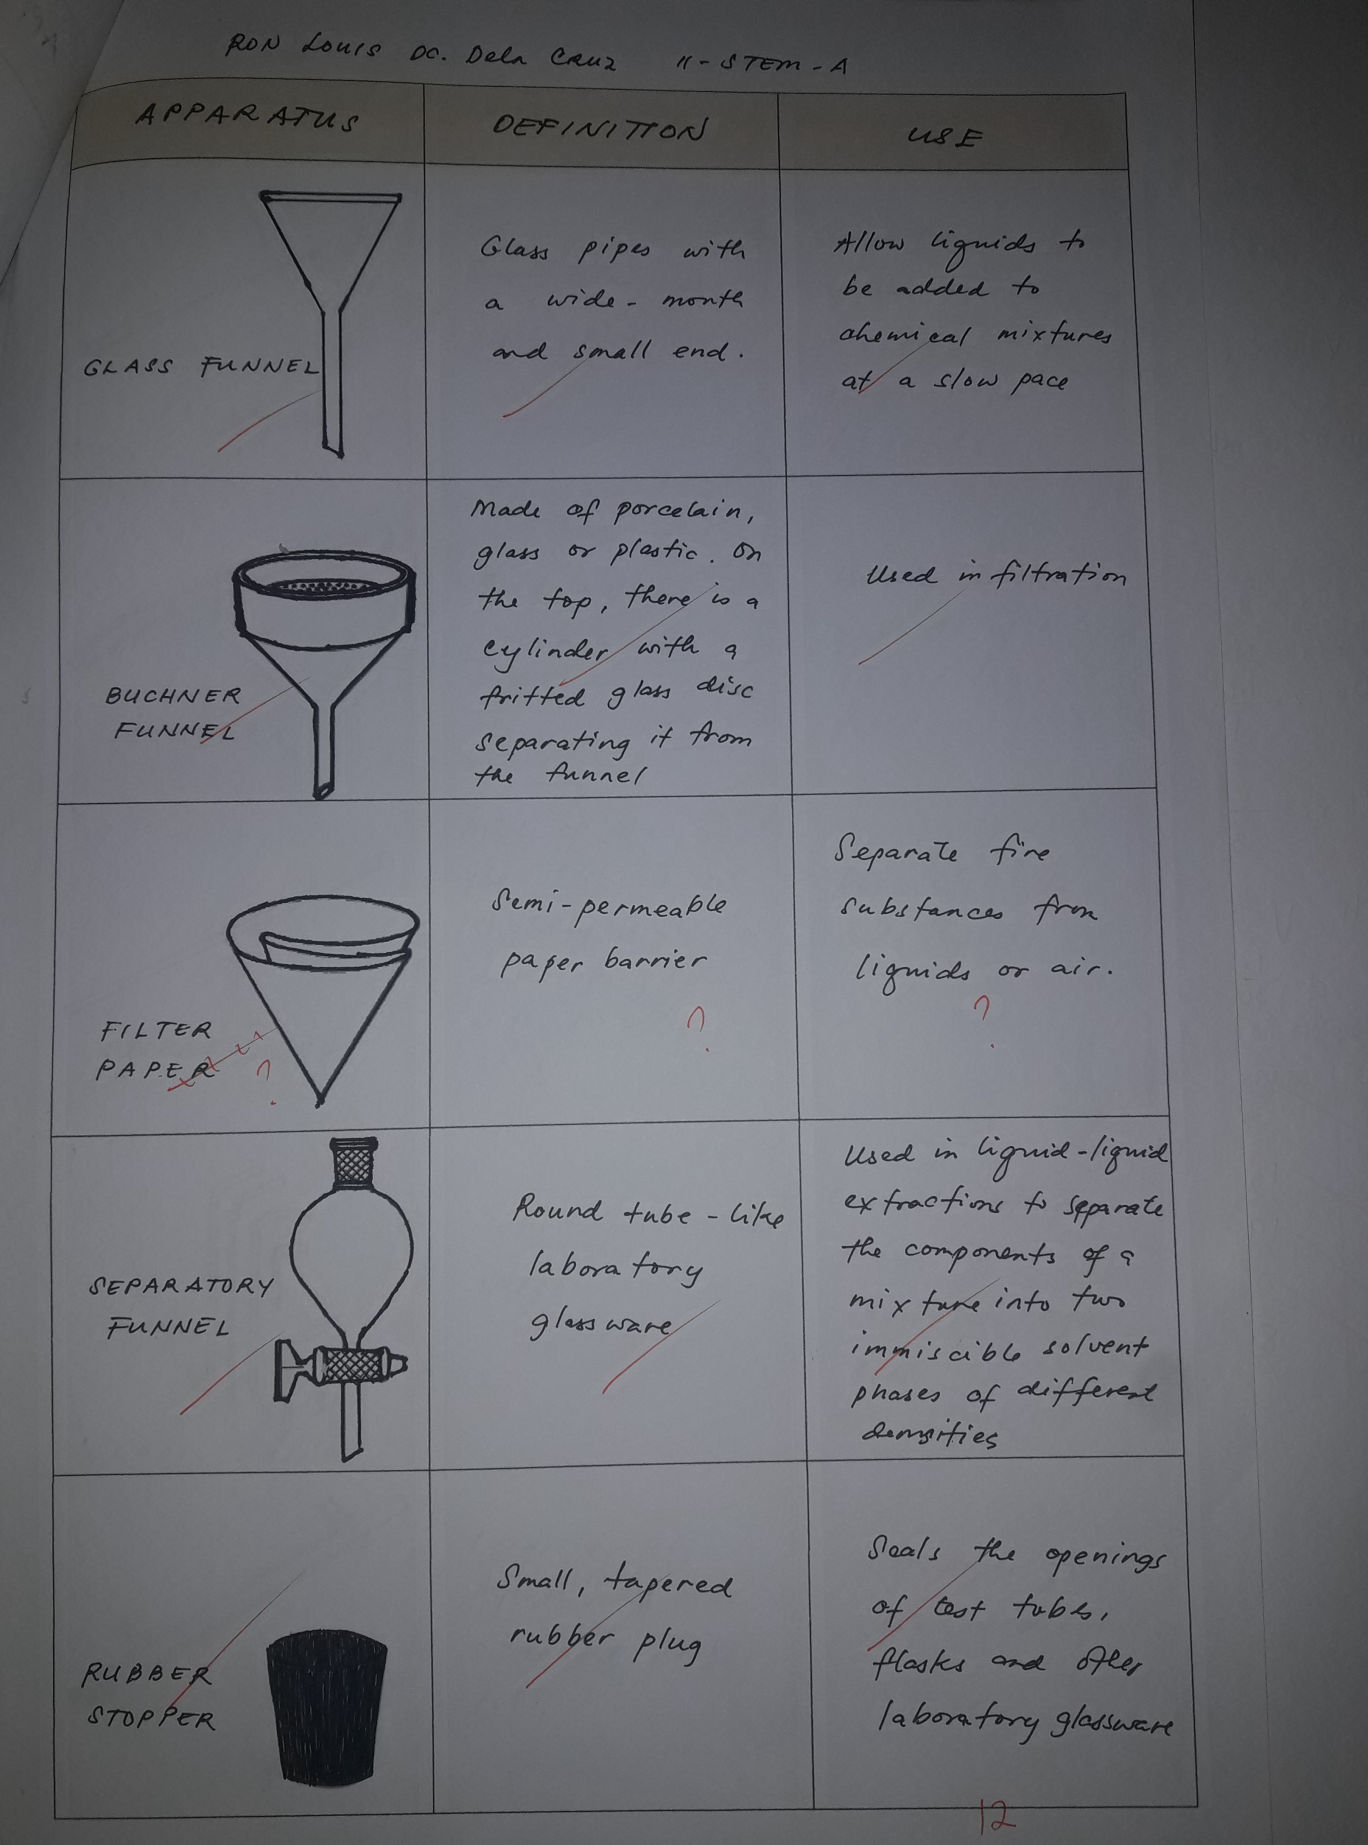 RON LOUIS DC. Dela Cruz 11-STEM-A
APPARATUS
DEFINITION
USE
GLASS FUNNEL
Glass pipes with
a wide-month
and small end.
Allow liquids to
be added to
chemical mixtures
at a slow pace
BUCHNER
FUNNEL
Made of porcelain,
glass or plastic. On
the top, there is a
cylinder with a
fritted glass disc
separating it from
the funnel
Used in filtration
FILTER
PAPER
?
Semi-permeable
paper barrier
?
Separate fine
substances from
liquids or air.
?
SEPARATORY
FUNNEL
Round tube-like
laboratory
glassware
Used in liquid-liquid
extractions to separate
the components of a
mixture into two
immiscible solvent
phases of different
densities
RUBBER
STOPPER
Small, tapered
rubber plug
Seals the openings
of test tubes,
flasks and other
laboratory glassware
12